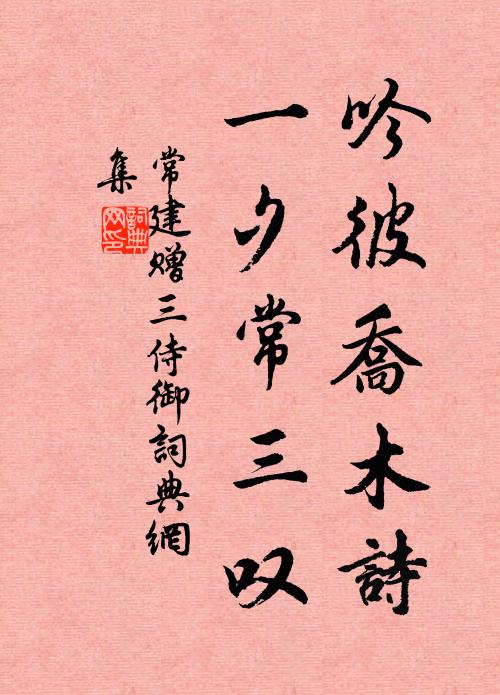 吟彼喬木詩
一夕常三叹
常建贈三侍御詞典網
集
詞典
网印